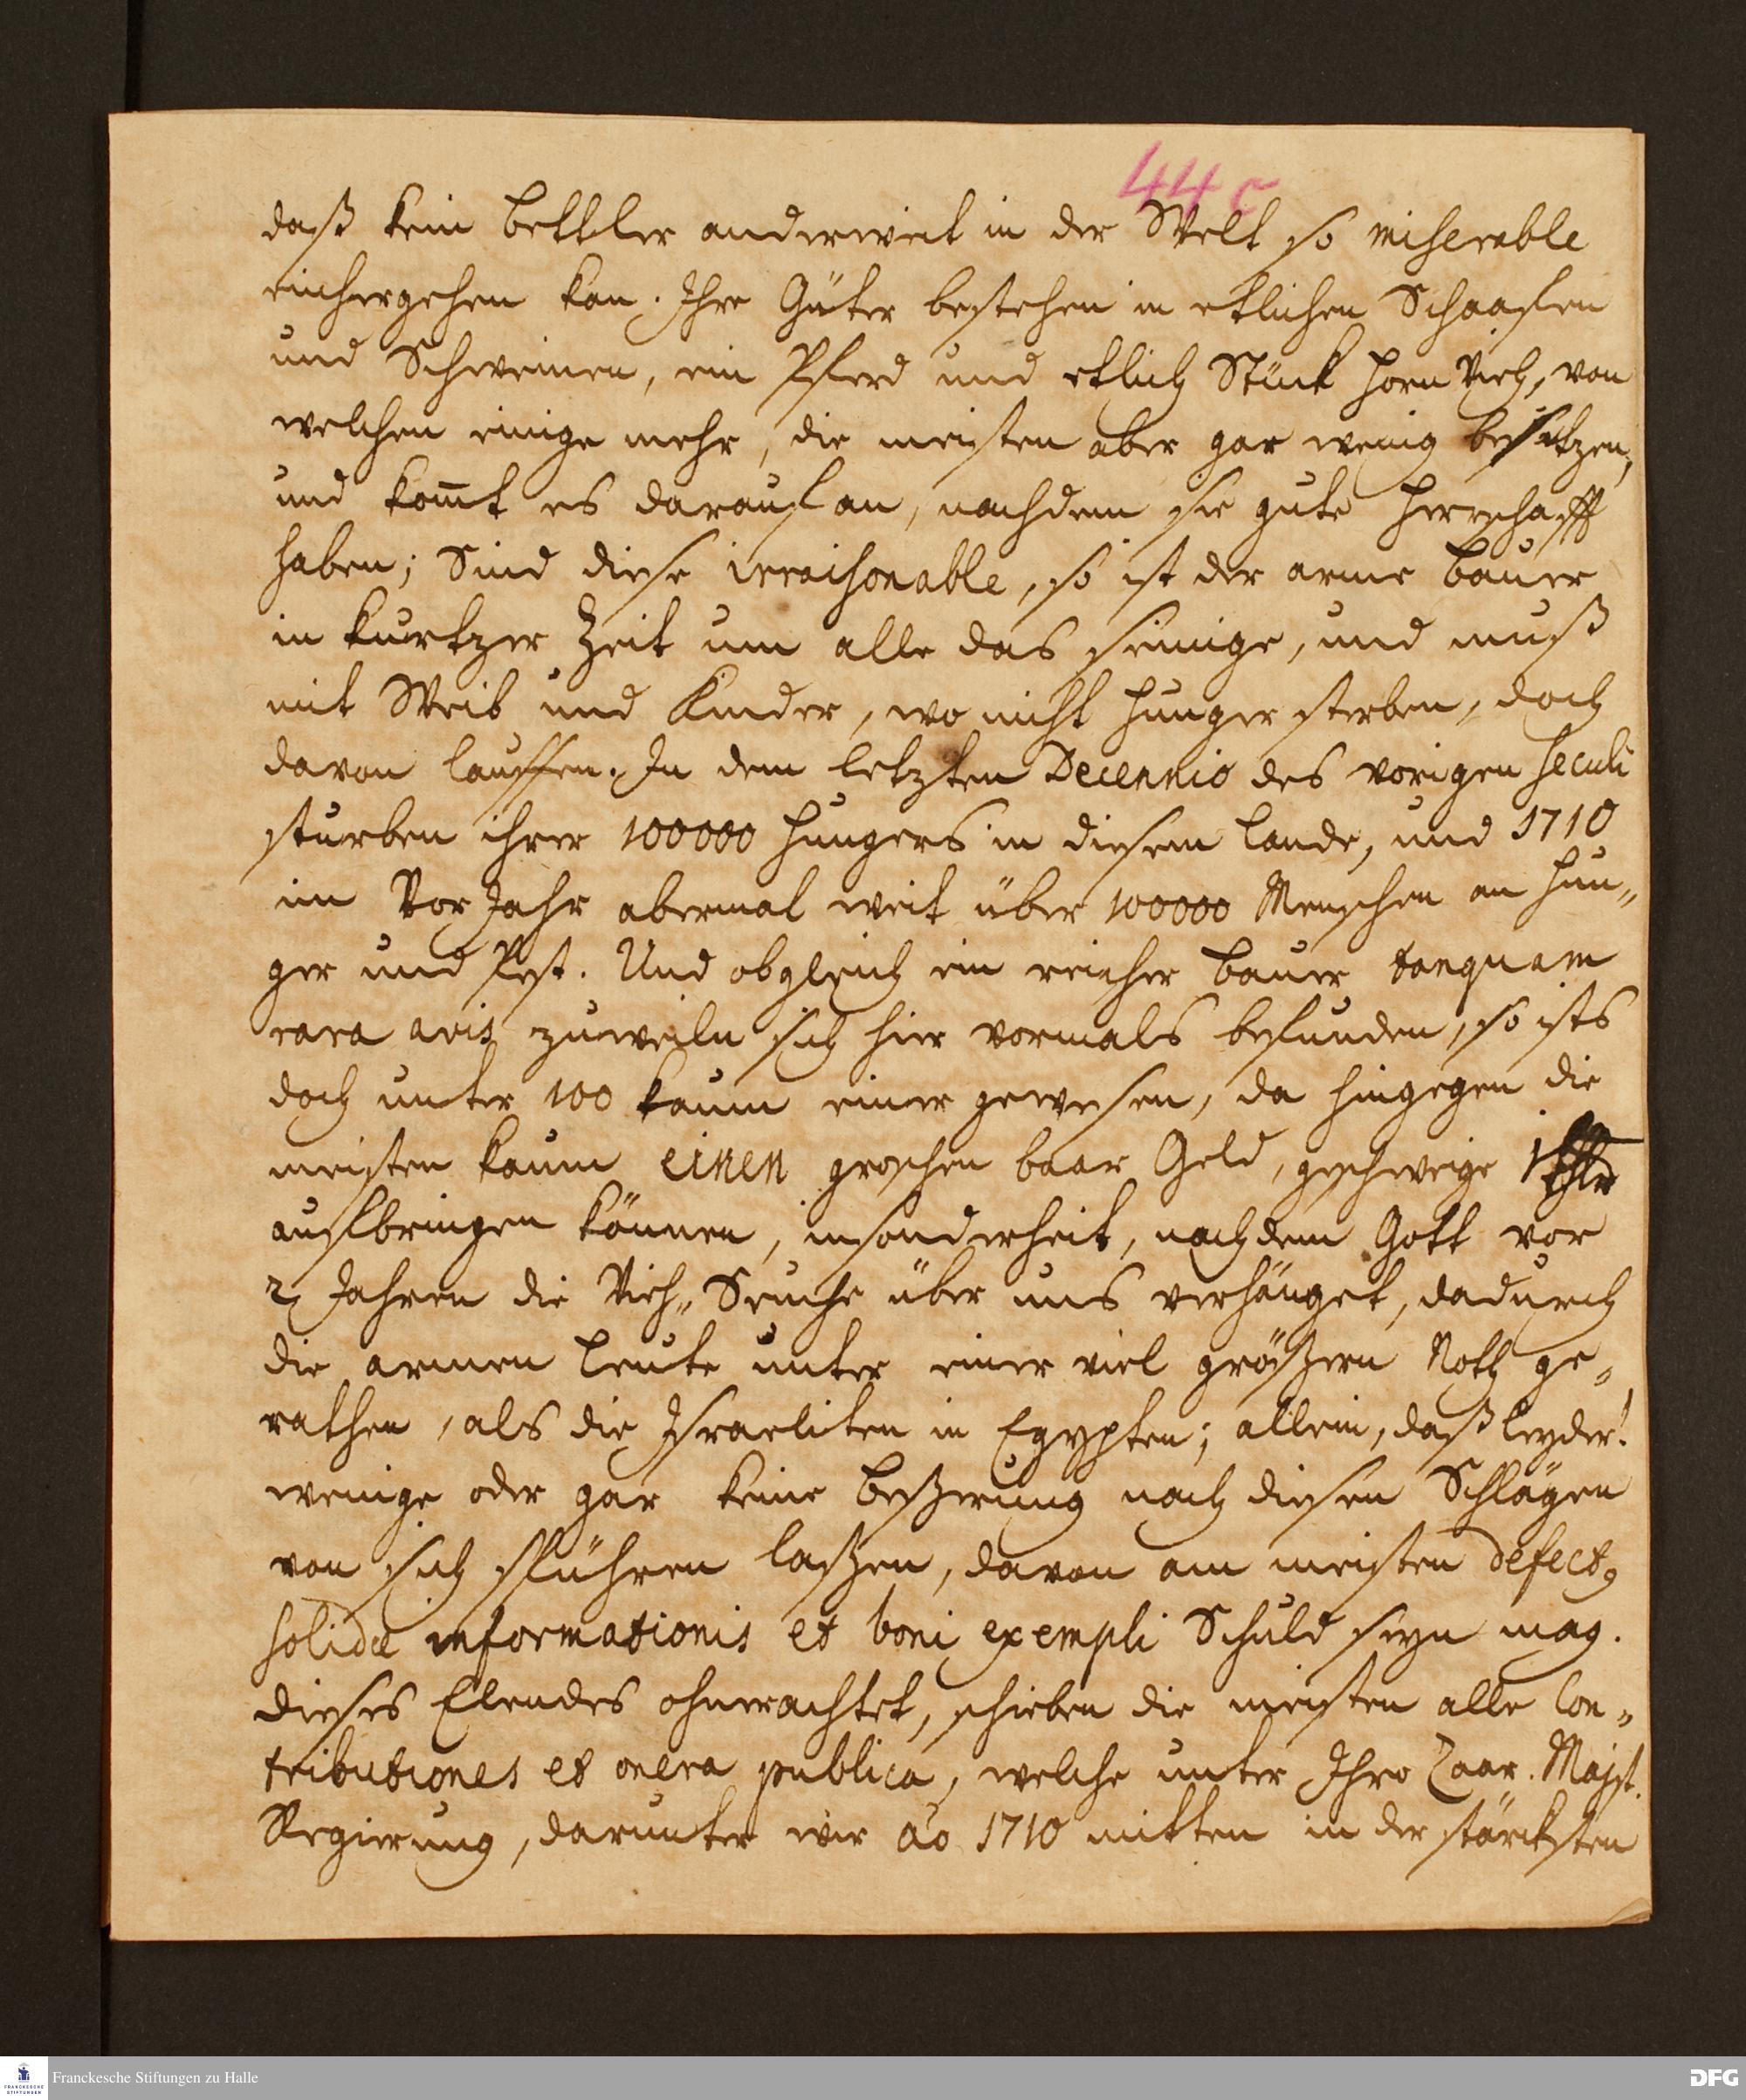 44 c
daß kein bettler anderweit in der Welt so miserable
einhergehen kan. Ihre Güter bestehen in etlichen Schaaffen
und Schweinen, ein Pferd und etlich Stück Horn Vieh, von
welchen einige mehr, die meisten aber gar wenig besitzen,
und kom̅t es darauf an, nachdem sie gute Herrschafft
haben; Sind diese irraisonable, so ist der arme bauer
in kurtzer Zeit um alle das seinige, und muß
mit Weib und Kinder, wo nicht Hunger sterben, doch
davon lauffen. In dem letzten Decennio des vorigen seculi
sturben ihrer 100000 Hungers in diesem lande, und 1710
im Vor Jahr abermal weit über 100000 Menschen an Hun„
ger und Pest. Und obgleich ein reicher bauer tanquam
rara avis zuweiln sich hier vormals befunden, so ists
doch unter 100 kaum einer gewesen, da hingegen die
meisten kaum einen groschen baar Geld, geschweige 1 thlr
aufbringen können, insonderheit, nachdem Gott vor
2 Jahren die Vieh„ Seuche über uns verhänget, dadurch
die armen leute unter einer viel größern Noth ge„
rathen, als die Israeliten in Egypten; allein, daß leyder!
wenige oder gar keine beßerung nach diesen Schlägen
von sich spühren laßen, davon am meisten defectq
solidæ informationis et boni exempli Schuld seyn mag.
dieses Elendes ohnerachtet, schieben die meisten alle Con„
tributiones et onera publica, welche unter Ihro Czaar. Majst.
Regierung, darunter wir aō 1710 mitten in der stärcksten
FRANCKESCHE
STIFTUNGEN
Franckesche Stiftungen zu Halle
DFG